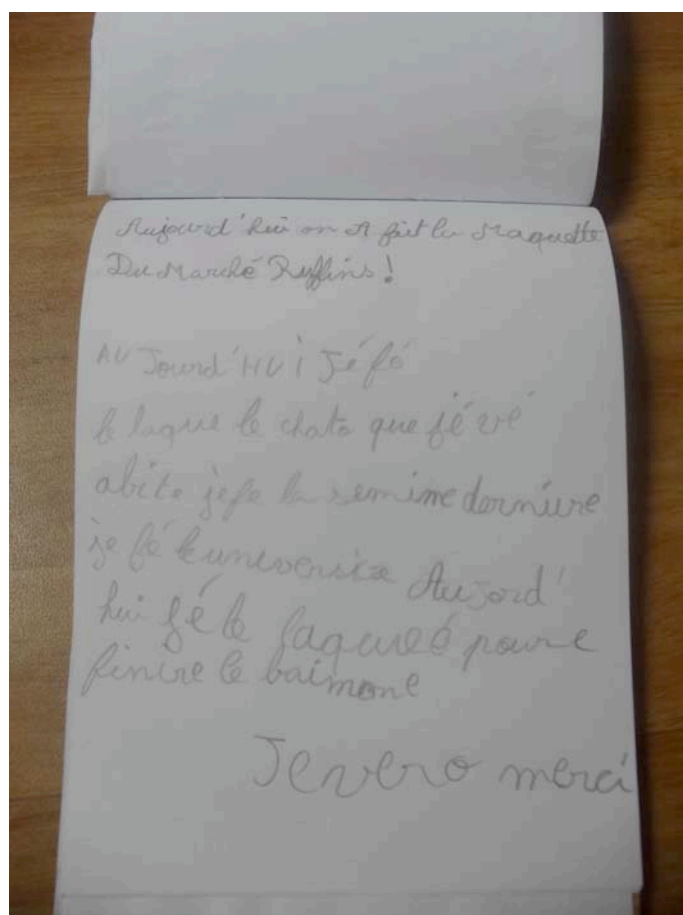 Aujourd'hui on A fait la Maquette
Du Marché Ruffins !
AUJourd'HUi Jéfé
le laque le chato que jé vé
abite jefe la semime derniure
je fé le universite Aujord'
hui fé le laqureé poure
finire le baimone
Jevero merci